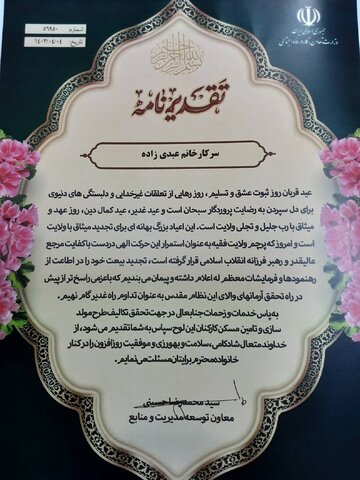 شماره: ۵۶۹۵۰
تاریخ: ۱۴۰۳/۰۴/۰۴
جمهوری اسلامی ایران
وزارت تعاون، کار و رفاه اجتماعی
بسم الله الرحمن الرحیم
تقدیرنامه
سرکار خانم عبدی زاده
عید قربان روز ثبوت عشق و تسلیم، روز رهایی از تعلقات غیرخدایی و دلبستگی های دنیوی
برای دل سپردن به رضایت پروردگار سبحان است و عید غدیر، عید کمال دین، روز عهد و
میثاق با رب جلیل و تجلی ولایت است. این اعیاد بزرگ بهانه ای برای تجدید میثاق با ولایت
است و امروز که پرچم ولایت فقیه به عنوان استمرار این حرکت الهی در دست با کفایت مرجع
عالیقدر و رهبر فرزانه انقلاب اسلامی قرار گرفته است، تجدید بیعت خود را در اطاعت از
رهنمودها و فرمایشات معظم له اعلام داشته و پیمان می بندیم که با عزمی راسخ تر از پیش
در راه تحقق آرمانهای والای این نظام مقدس به عنوان تداوم راه غدیر گام نهیم.
به پاس خدمات و زحمات جنابعالی در جهت تحقق تکالیف طرح مولد
سازی و تامین مسکن کارکنان این لوح سپاس به شما تقدیم می شود، از
خداوند متعال شادکامی، سلامت و بهورزی و موفقیت روزافزون را در کنار
خانواده محترم برایتان مسئلت می نمایم.
سید محمدرضا حسینی
معاون توسعه مدیریت و منابع